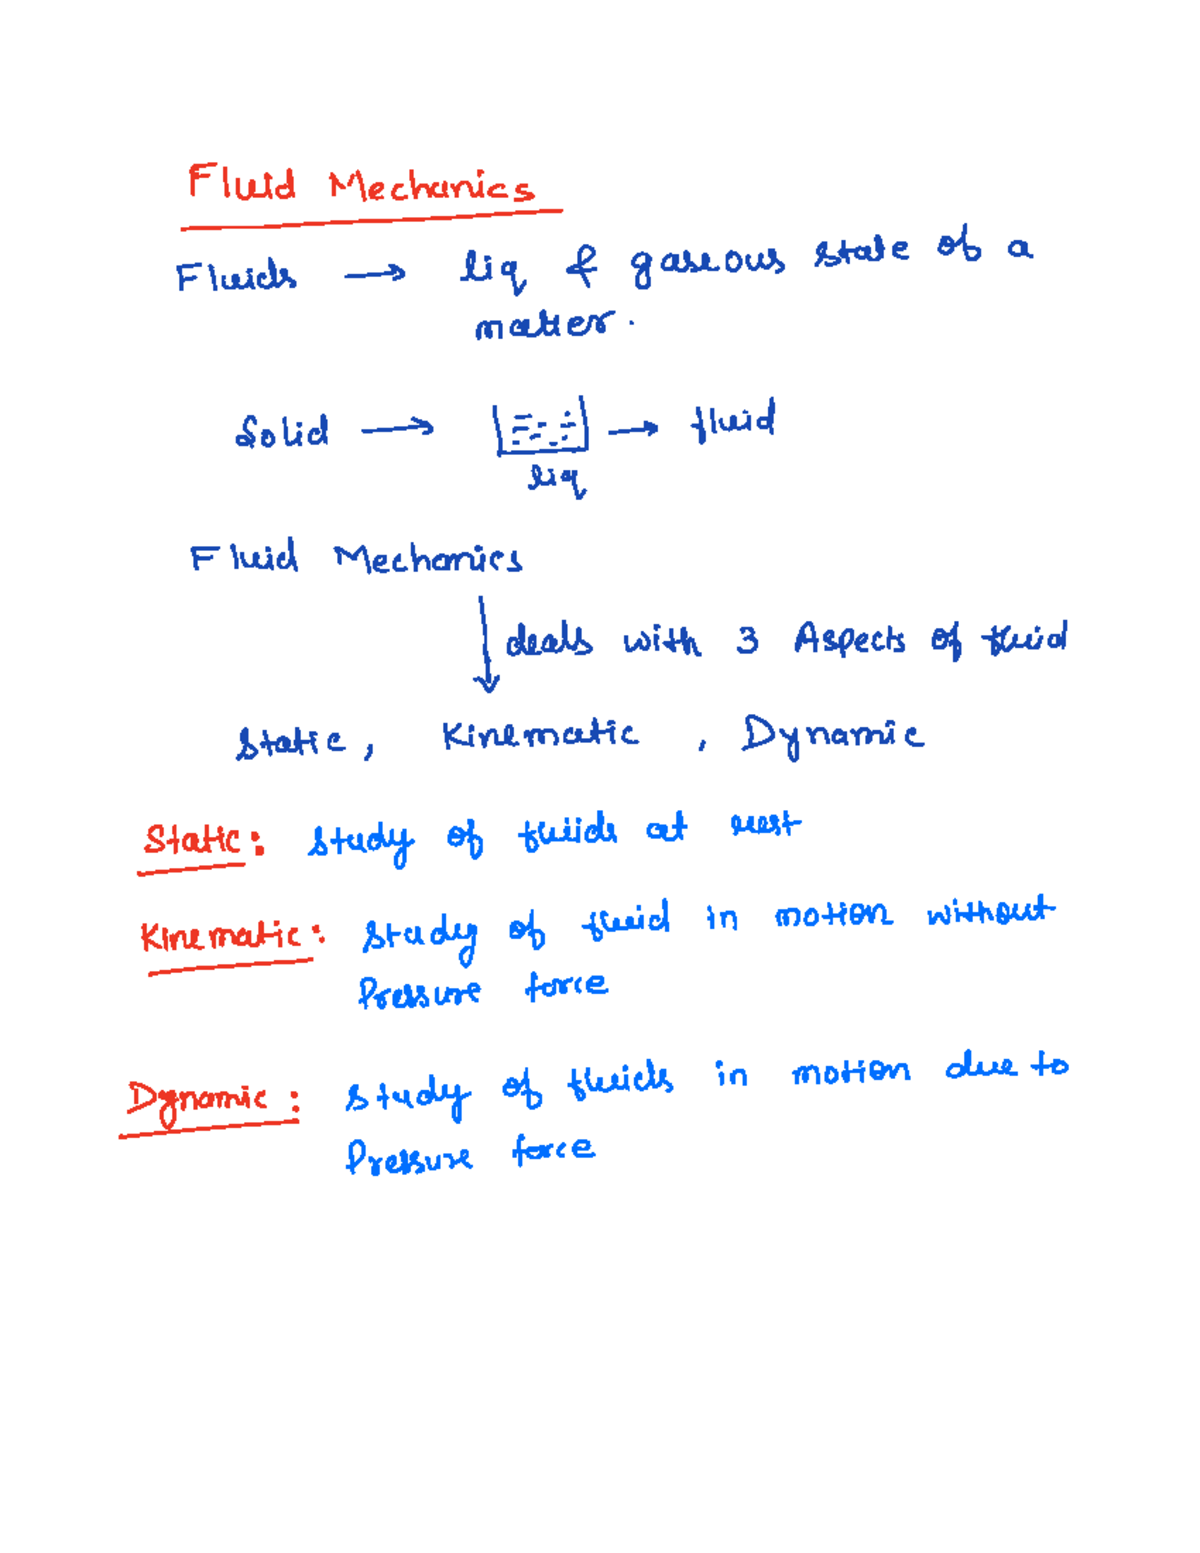 Fluid Mechanics
Fluids → liq & gaseous state of a
matter.
Solid → → fluid
liq
Fluid Mechanics
deals with 3 Aspects of fluid
Static, Kinematic, Dynamic
Static: Study of fluids at rest
Kinematic: Study of fluid in motion without
Pressure force
Dynamic: Study of fluids in motion due to
Pressure force